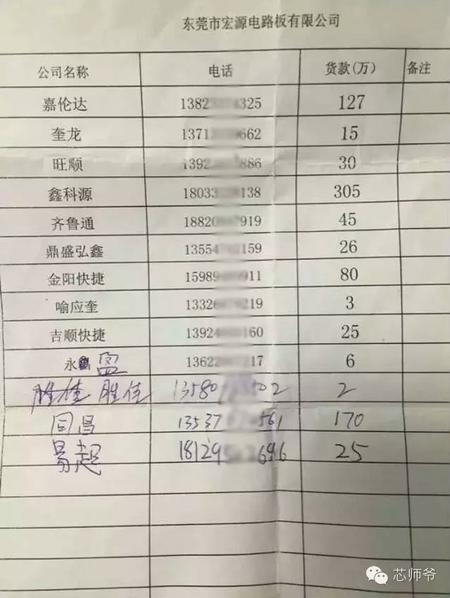 东莞市宏源电路板有限公司
公司名称 电话 货款(万) 备注
嘉伦达 1382 4325 127
奎龙 1371 662 15
旺顺 1392 886 30
鑫科源 18033 138 305
齐鲁通 18820 919 45
鼎盛弘鑫 13554 159 26
金阳快捷 15989 911 80
喻应奎 13326 219 3
吉顺快捷 13924 160 25
永 盈 13622 217 6
胜佳 胜佳 13580 502 2
同昌 13537 561 170
易超 18129 696 25
芯师爷